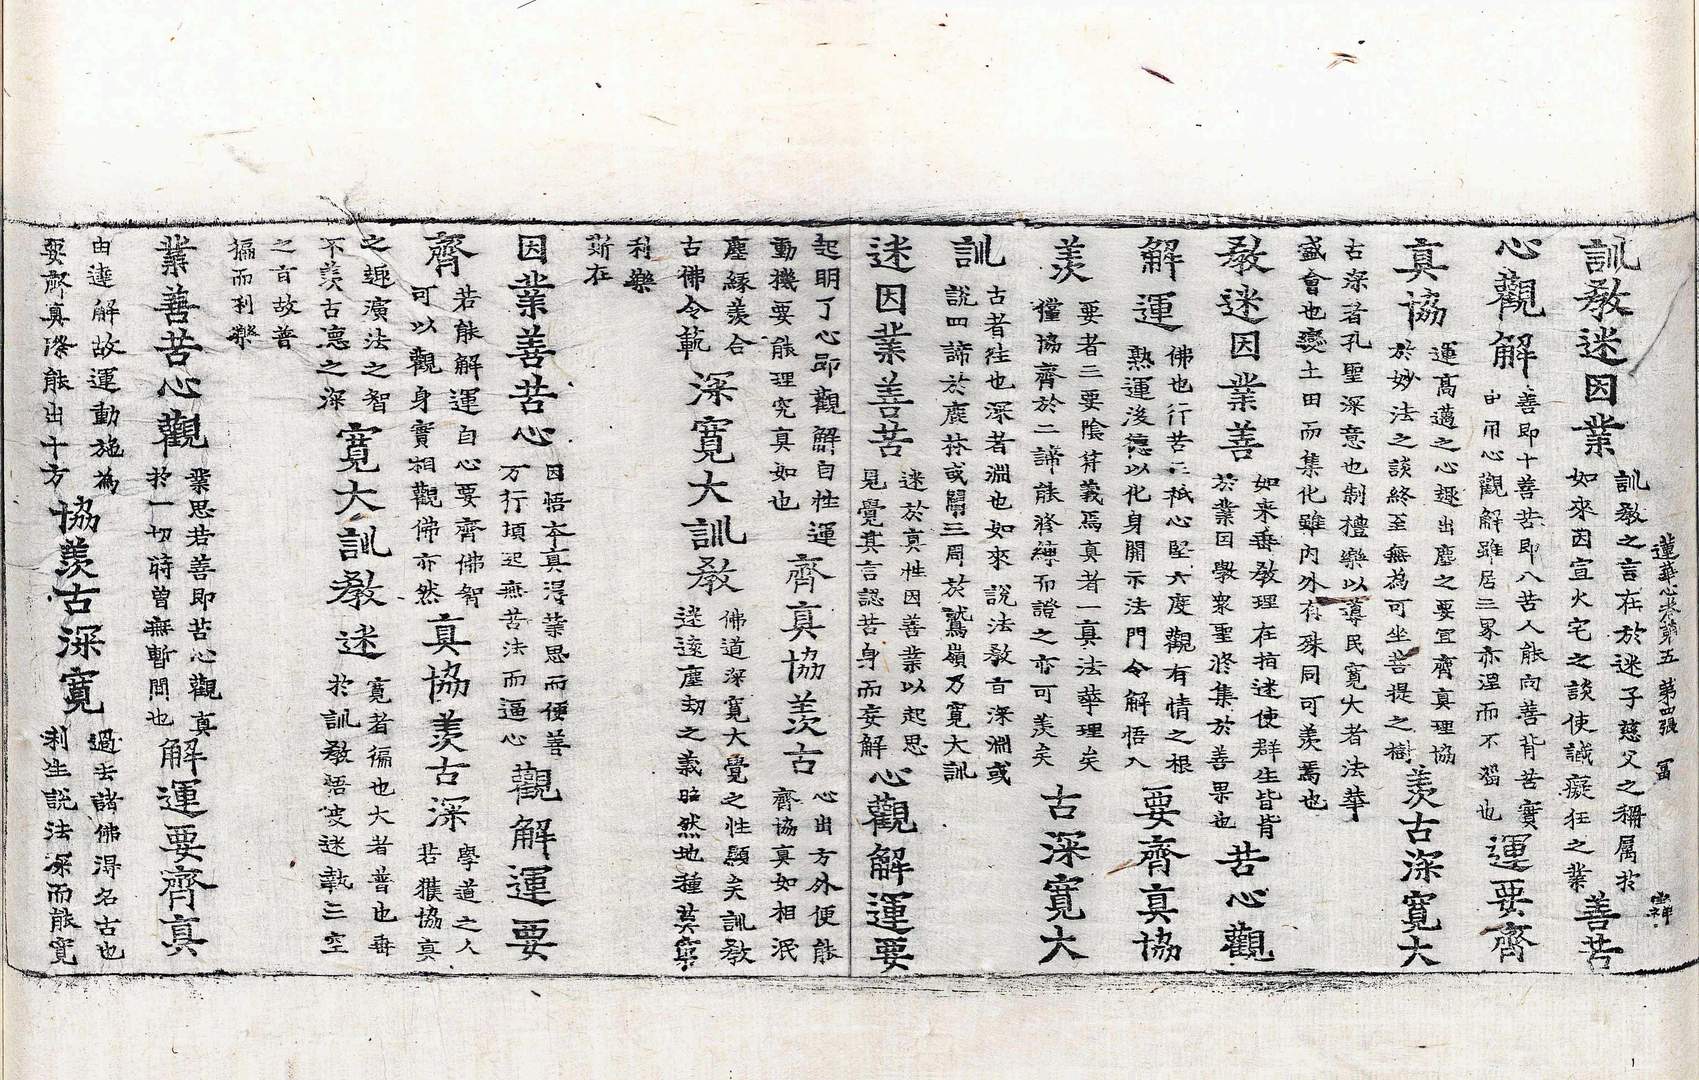 蓮華心卷第五 第四張
訓敎迷因業
訓敎之言在於迷子慈父之稱属於
如來因宣火宅之談使誡癡狂之業
善苦
心觀解
善即十善苦即八苦人能向善背苦實
由用心觀解雖居三界亦湼而不緇也
運要齊
真協
運髙邁之心趣出塵之要冝齊真理協
於妙法之談終至無為可坐菩提之樹
羨古深寬大
古深者孔聖深意也制禮樂以導民寬大者法華
盛會也變土田而集化雖内外有殊同可羨焉也
敎迷因業善
如来垂敎理在指迷使群生皆背
於業因與衆聖將集於善果也
苦心觀
解運
佛也行苦三祇心堅六度觀有情之根
熟運浚德以化身開示法門令解悟入
要齊真協
羨
要者三要陰符義焉真者一真法華理矣
僅協齊於二諦能修練而證之亦可羨矣
古深寬大
訓
古者徃也深者淵也如來說法敎言深淵或
說四諦於鹿林或開三周於鷲嶺乃寬大訓
迷因業善苦
迷於真性因善業以起思
見覺真言認苦身而妄解
心觀解運要
起明了心即觀解自性運
動機要能理究真如也
齊真協羨古
心出方外便能
齊協真如相泯
塵緣羨合
古佛令軌
深寬大訓敎
佛道深寬大覺之性顯矣訓敎
迷逺塵刼之義昭然地種其窮
利樂
斯在
因業善苦心
因悟夲真浸業思而便善
万行頊起無苦法而逼心
觀解運要
齊
若能解運自心要齊佛智
可以觀身實相觀佛亦然
真協羨古深
學道之人
若獲協真
之趣濱法之智
不羨古悳之深
寬大訓敎迷
寬者徧也大者普也垂
於訓敎悟使迷執三空
之言故善
徧而利樂
業善苦心觀
業思若善即苦心觀真
於一切時曽無暫間也
解運要齊真
由達解故運動施為
要齊真際能出十方
協羨古深寬
過去諸佛得名古也
利生說法深而能寬